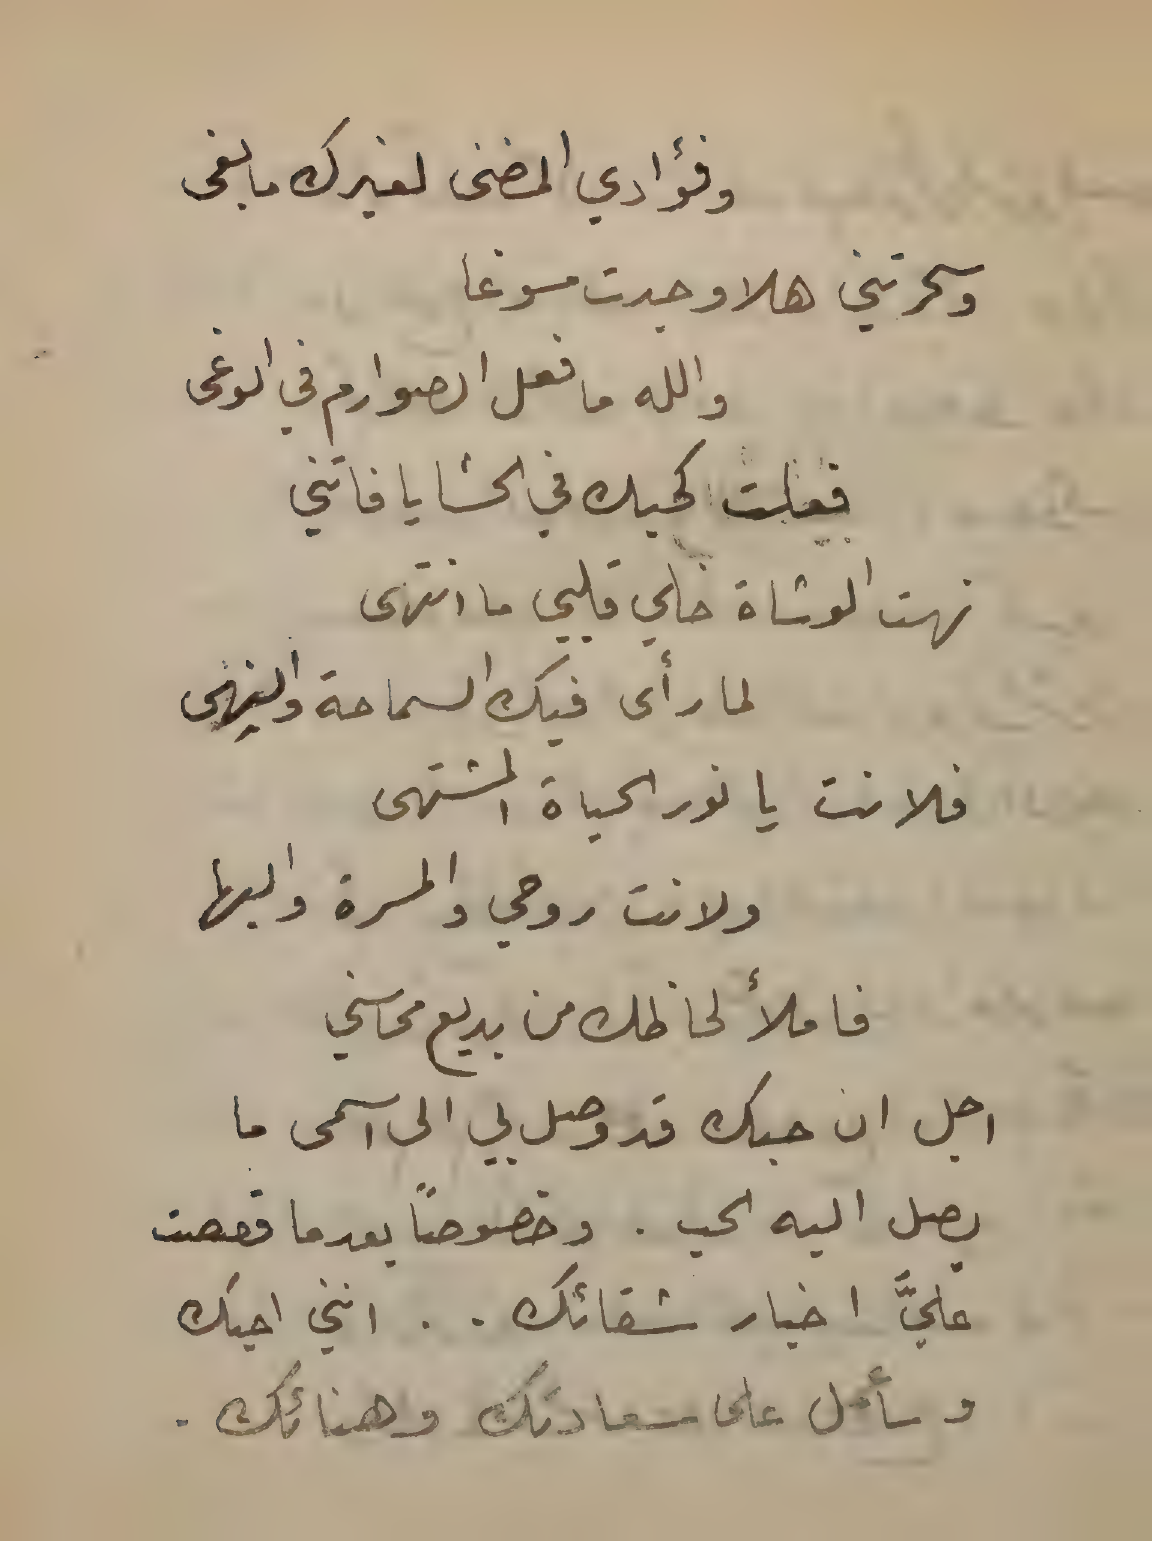 وفؤادي المضنى لغيرك ما بغى
وسحرتني هلا وجدت مسوغا
والله ما فعل الصوارم في الوغى
فعلت كحبك في الحشا يا فاتني
نهت الوشاة خلي قلبي ما انتهى
لما رأى فيك السماحة والنهى
فلانت يا نور الحياة المشتهى
ولانت روحي والمسرة والبها
فاملأ لحاظك من بديع محاسني
اجل ان حبك قد وصل بي الى اسمى ما
يصل اليه الحب . وخصوصاً بعدما قصصت
عليَّ اخبار شقائك . . انني احبك
وسأعمل على سعادتك وهنائك .